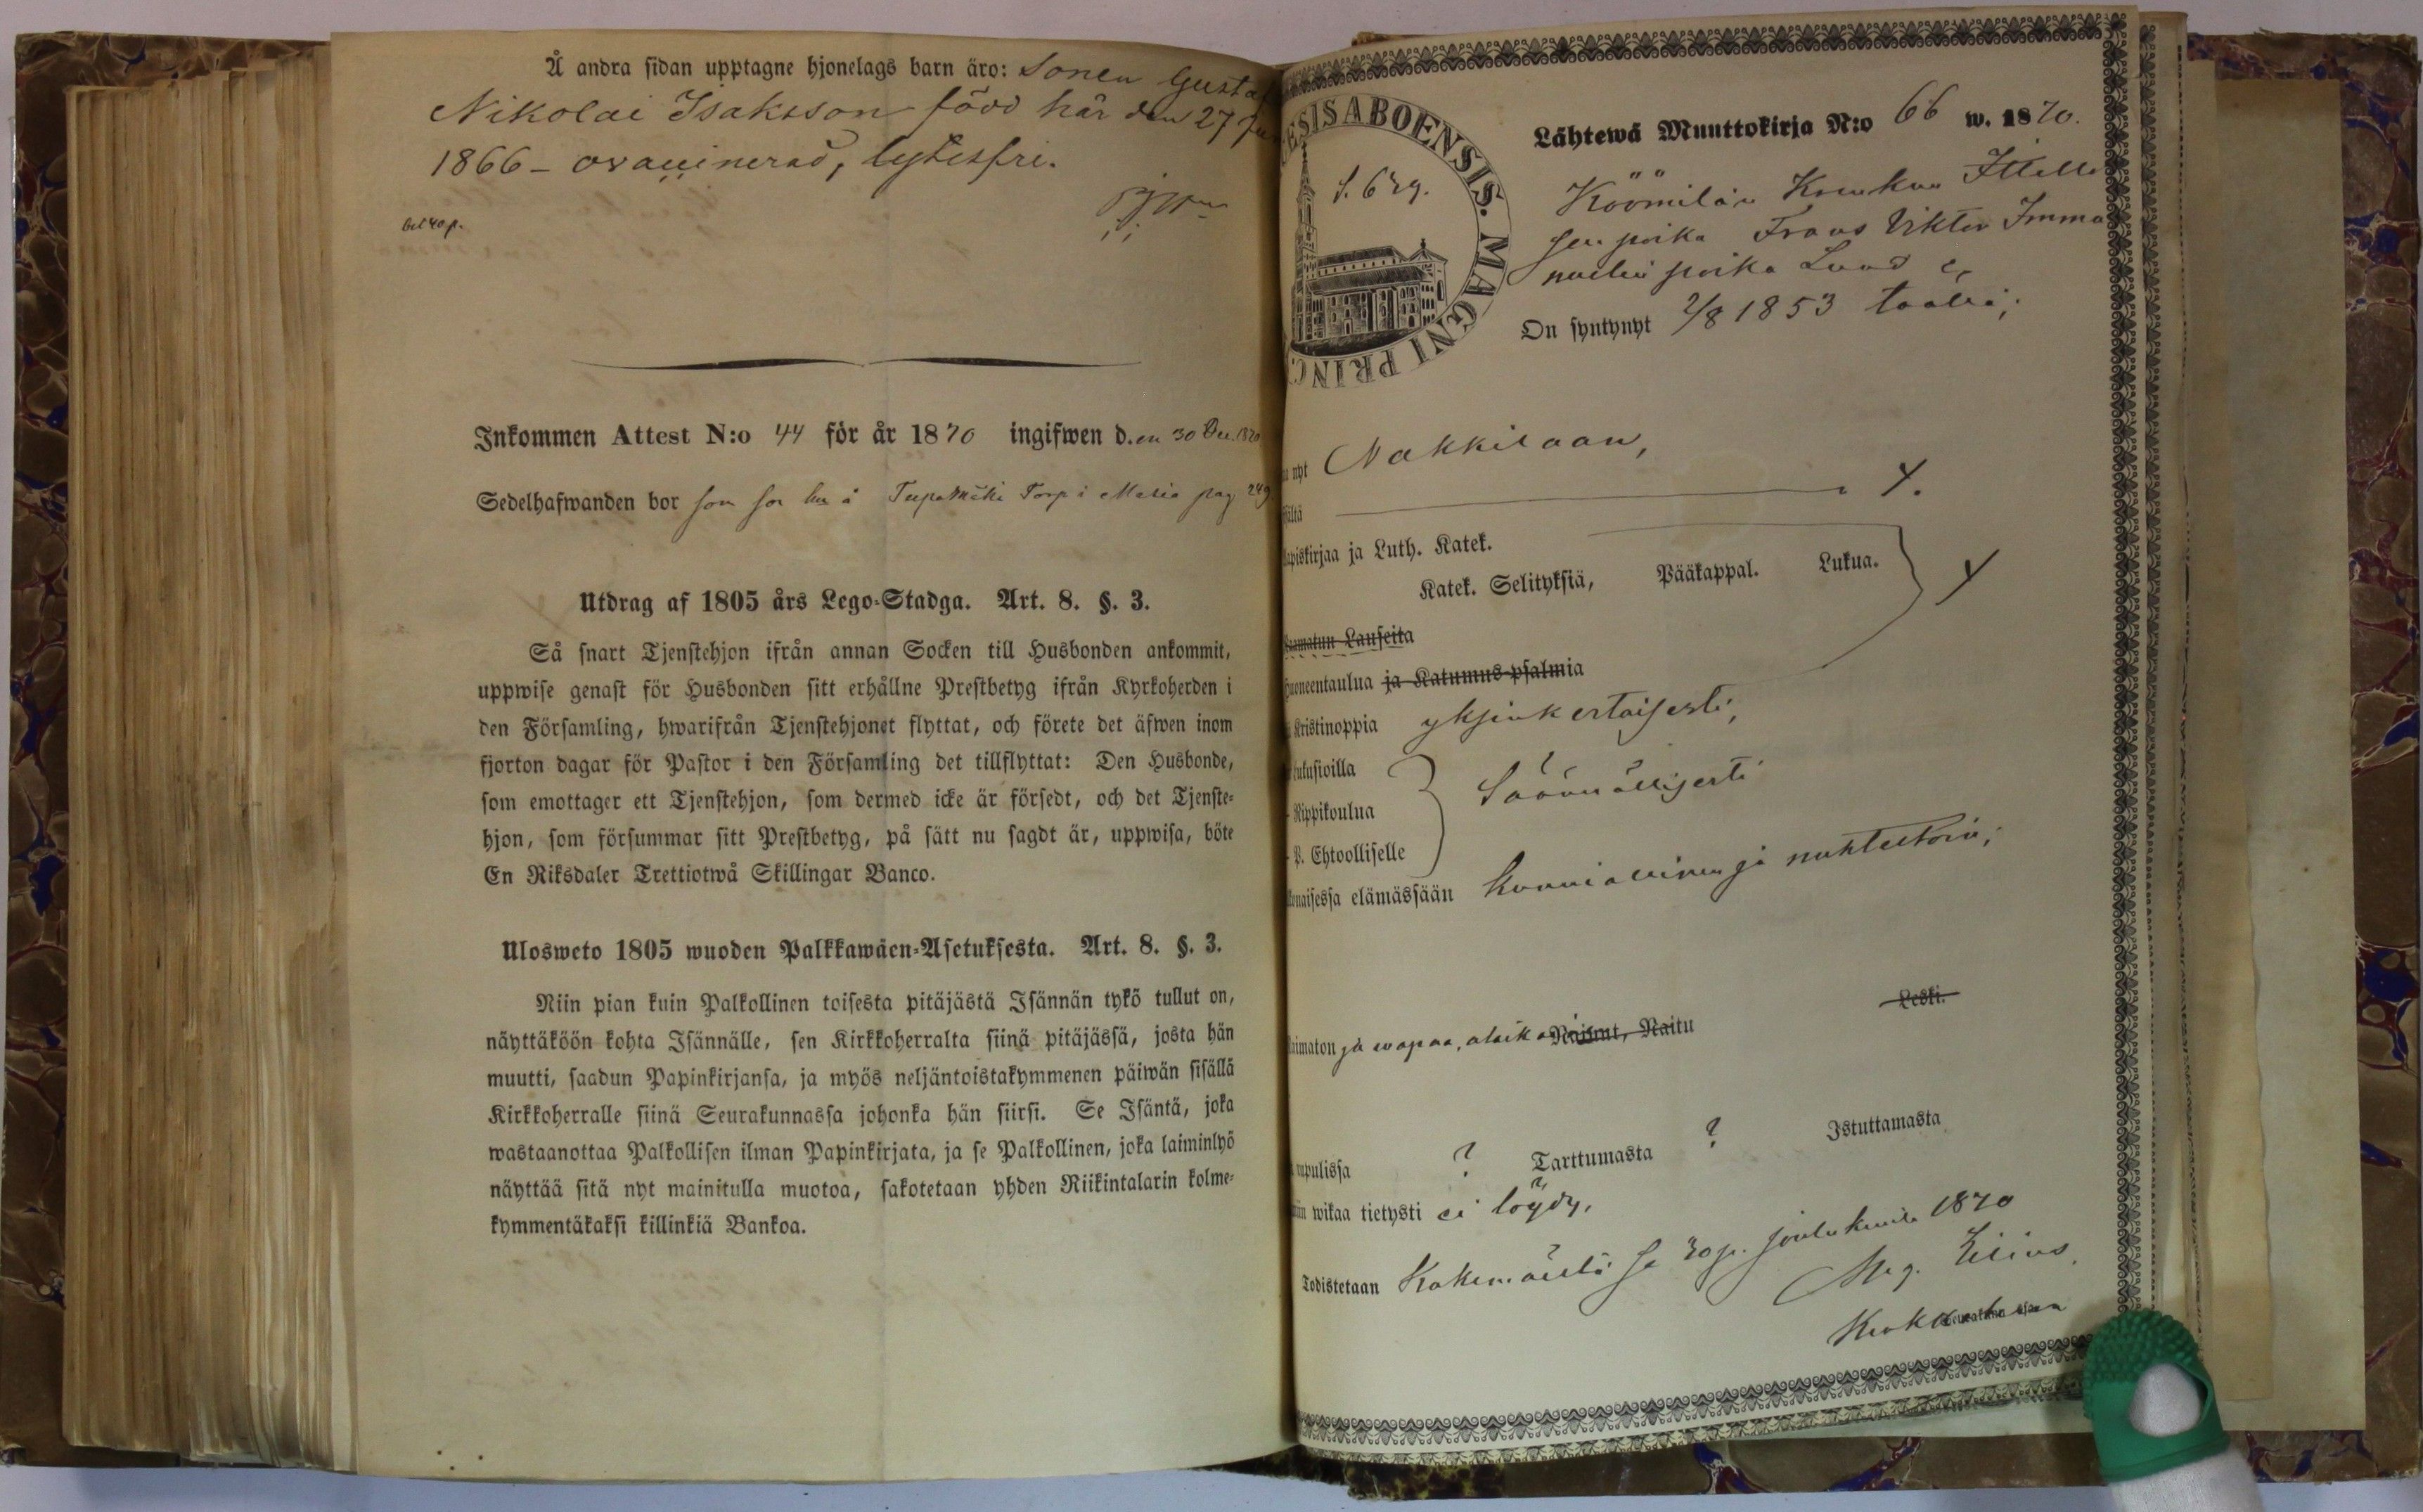 Å andra sidan upptagne hjonelags barn äro: Sonen Gustaf
Nikolai Isaksson född här den 27
1866 – ovaccinerad, lytesfri.
bet 40 p.
Inkommen Attest N:o 44 för år 1870 ingifwen d. en 30 Dec. 1870
Sedelhafwanden bor son hos å Tupamäki Torp i Masia pag 249
Utdrag af 1805 års Lego-Stadga. Art. 8. §. 3.
Så snart Tjenstehjon ifrån annan Socken till Husbonden ankommit,
uppwise genast för Husbonden sitt erhållne Prestbetyg ifrån Kyrkoherden i
den Församling, hwarifrån Tjenstehjonet flyttat, och förete det äfwen inom
fjorton dagar för Pastor i den Församling det tillflyttat: Den Husbonde,
som emottager ett Tjenstehjon, som dermed icke är försedt, och det Tjenste-
hjon, som försummar sitt Prestbetyg, på sätt nu sagdt är, uppwisa, böte
En Riksdaler Trettiotwå Skillingar Banco.
Ulosweto 1805 wuoden Palkkawäen-Asetuksesta. Art. 8. §. 3.
Niin pian kuin Palkollinen toisesta pitäjästä Isännän tykö tullut on,
näyttäköön kohta Isännälle, sen Kirkkoherralta siinä pitäjässä, josta hän
muutti, saadun Papinkirjansa, ja myös neljäntoistakymmenen päiwän sisällä
Kirkkoherralle siinä Seurakunnassa johonka hän siirsi. Se Isäntä, joka
wastaanottaa Palkollisen ilman Papinkirjata, ja se Palkollinen, joka laiminlyö
näyttää sitä nyt mainitulla muotoa, sakotetaan yhden Riikintalarin kolme-
kymmentäkaksi killinkiä Bankoa.
ESIS ABOENSIS. MAGNI PRINC
S. 629.
Lähtewä Muuttokirja N:o 66 w. 1870.
Köömilän
poika Frans Viktor Imma
nuelin poika Lund
On syntynyt 2/8 1853 täällä;
nyt Nakkilaan,
ältä
apiskirjaa ja Luth. Katek.
Katek. Selityksiä, Pääkappal. Lukua.
Raamatun Lauseita
Huoneentaulua ja Katumus-psalmia
Kristinoppia yksinkertaisesti,
lukusioilla
Rippikoulua Säännöllisesti
P. Ehtoolliselle
konaisessa elämässään kunniallinen ja nuhteetoin;
Leski.
aimaton ja wapaa, Naitu
rupulissa ? Tarttumasta ? Istuttamasta
wikaa tietysti ei löydy,
Todistetaan Kokemäellä 30 p. joulukuuta 1870